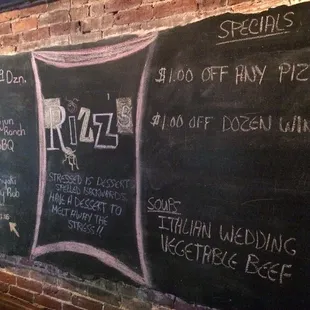 Dzn.
Ranch
BBQ
Rub
Rizz's
STRESSED IS DESSERT
SPELLED BACKWARDS
HAVE A DESSERT TO
MELT AWAY THE
STRESS!!
SPECIALS
$1.00 OFF ANY PIZ
$1.00 OFF DOZEN WIN
SOUPS
ITALIAN WEDDING
VEGETABLE BEEF